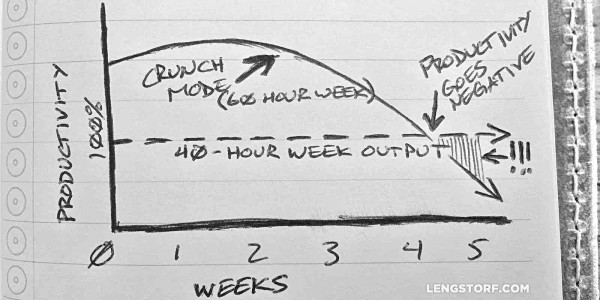 PRODUCTIVITY
100%
CRUNCH
MODE
(60 HOUR WEEK)
PRODUCTIVITY
GOES
NEGATIVE
40-HOUR WEEK OUTPUT
!!!
0 1 2 3 4 5
WEEKS
LENGSTORF.COM